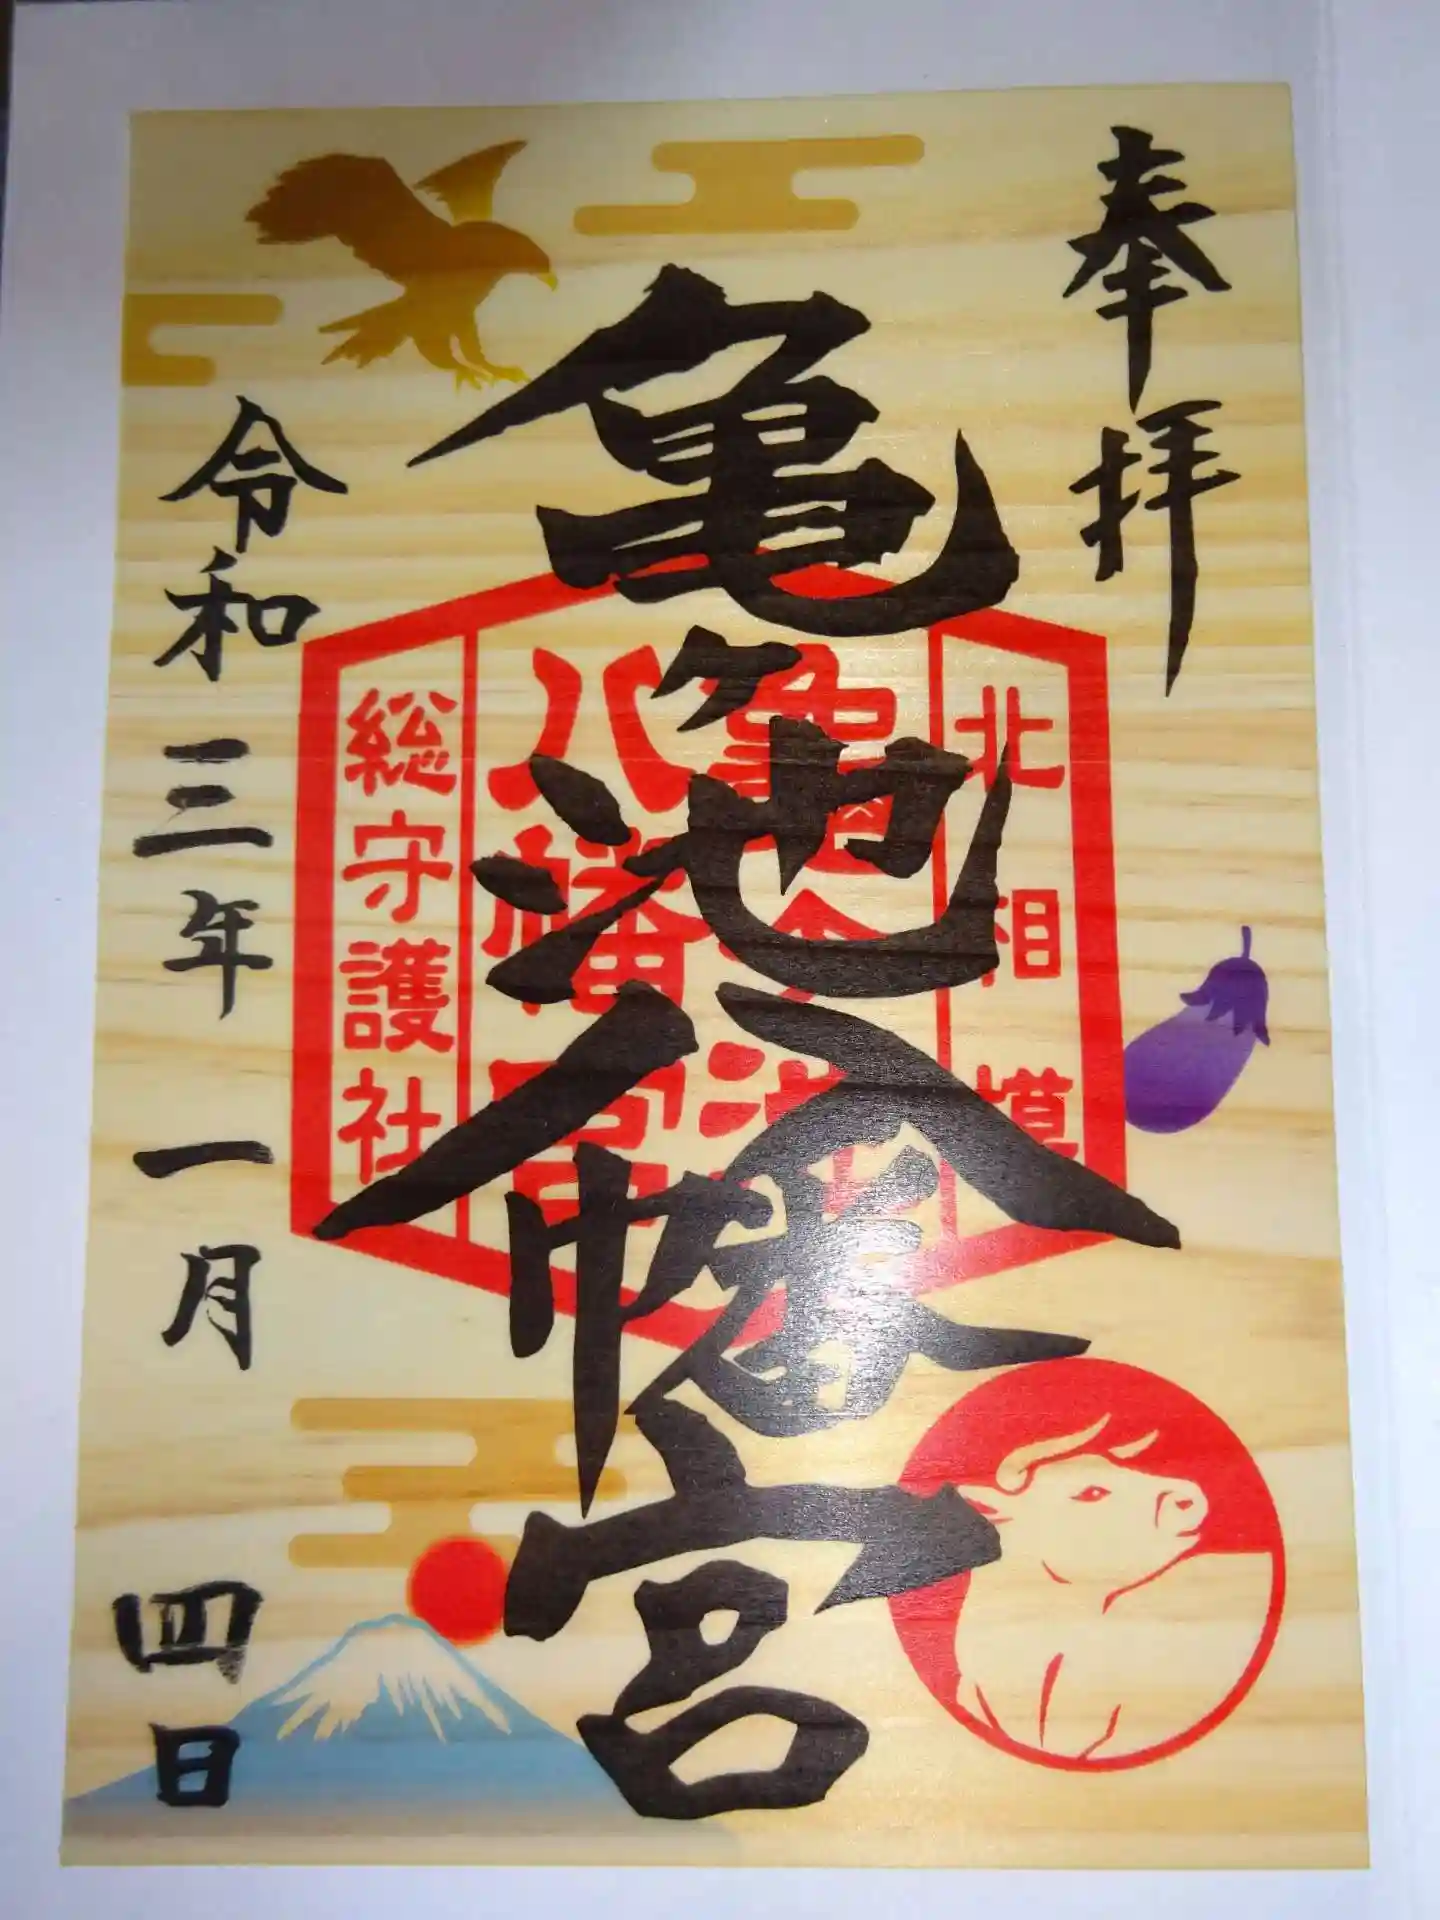 奉拝
亀ヶ池八幡宮
令和三年一月四日
北相模
亀ヶ池
八幡宮
総守護社